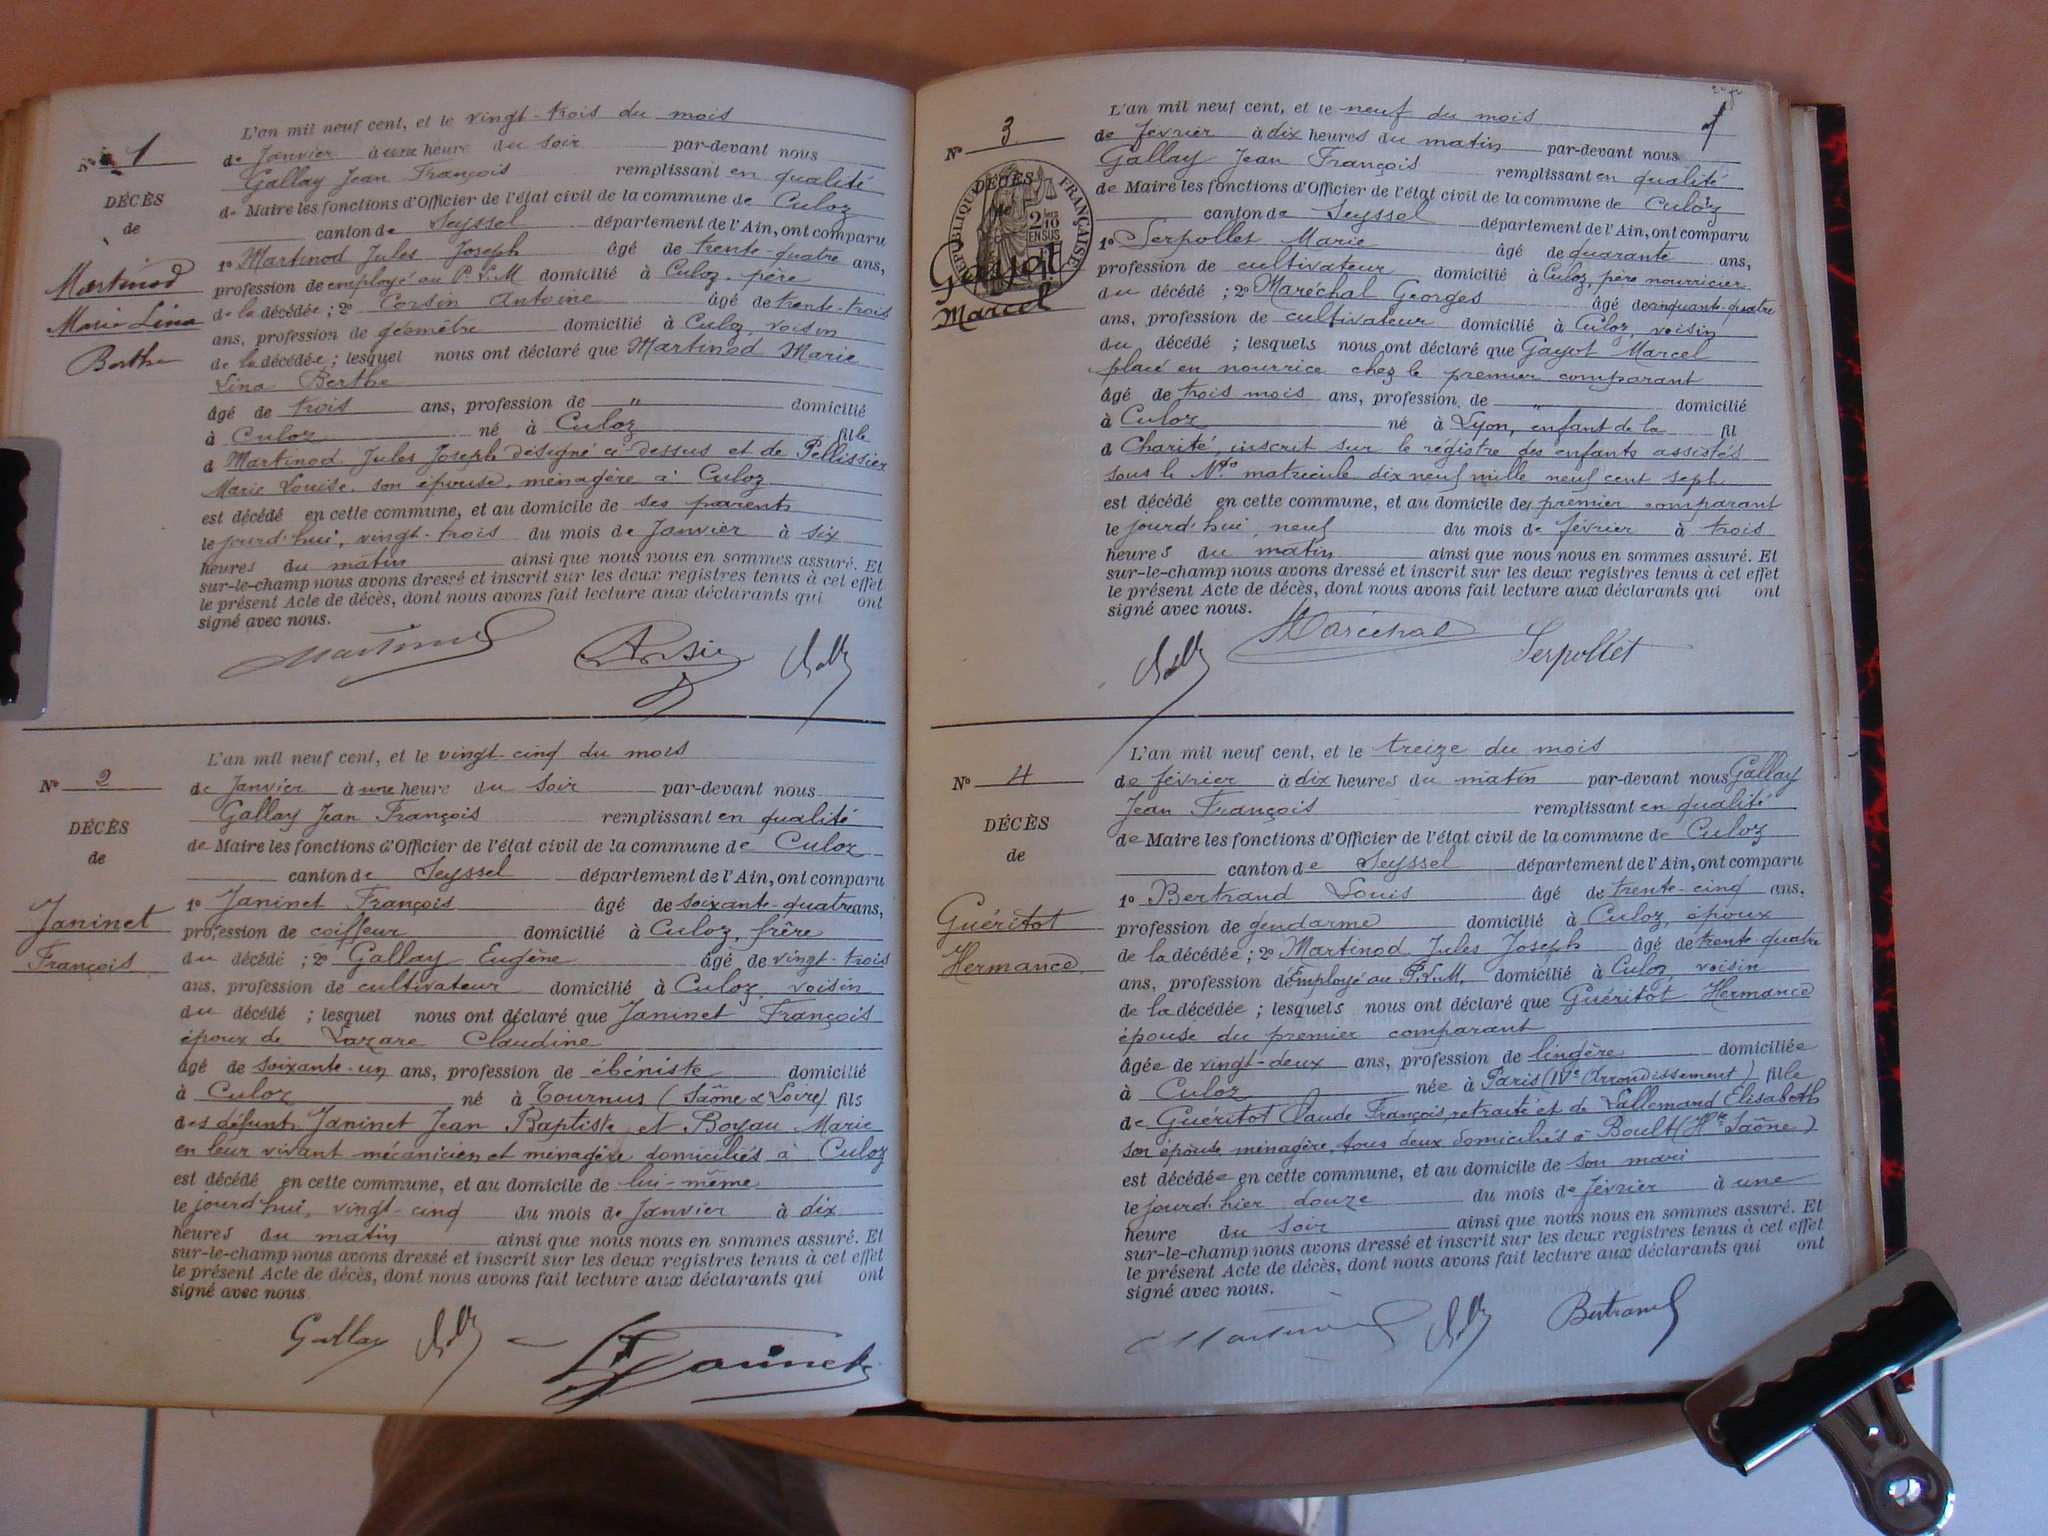 N° 1
DÉCÈS
de
Martinod
Marie Lina
Berthe
L'an mil neuf cent, et le vingt-trois du mois
de Janvier à une heure du soir par-devant nous
Gallay Jean François remplissant en qualité
de Maire les fonctions d'Officier de l'état civil de la commune de Culoz
canton de Seyssel département de l'Ain, ont comparu
1° Martinod Jules Joseph âgé de trente-quatre ans,
profession de employé au P.L.M domicilié à Culoz, père
de la décédée ; 2° Corsin Antoine âgé de trente-trois
ans, profession de géomètre domicilié à Culoz, voisin
de la décédée ; lesquel nous ont déclaré que Martinod Marie
Lina Berthe
âgé de trois ans, profession de " domicilié
à Culoz né à Culoz fille
d Martinod Jules Joseph désigné ci-dessus et de Pellissier
Marie Louise, son épouse, ménagère à Culoz
est décédé en cette commune, et au domicile de ses parents
le jourd'hui, vingt-trois du mois de Janvier à six
heures du matin ainsi que nous nous en sommes assuré. Et
sur-le-champ nous avons dressé et inscrit sur les deux registres tenus à cet effet
le présent Acte de décès, dont nous avons fait lecture aux déclarants qui ont
signé avec nous.
Martinod
N° 2
DÉCÈS
de
Janinet
François
L'an mil neuf cent, et le vingt-cinq du mois
de Janvier à une heure du soir par-devant nous
Gallay Jean François remplissant en qualité
de Maire les fonctions d'Officier de l'état civil de la commune de Culoz
canton de Seyssel département de l'Ain, ont comparu
1° Janinet François âgé de soixante-quatre ans,
profession de coiffeur domicilié à Culoz, frère
du décédé ; 2° Gallay Eugène âgé de vingt-trois
ans, profession de cultivateur domicilié à Culoz, voisin
du décédé ; lesquel nous ont déclaré que Janinet François
époux de Lazare Claudine
âgé de soixante-un ans, profession de ébéniste domicilié
à Culoz né à Tournus (Saône & Loire) fils
des défunts Janinet Jean Baptiste et Boyau Marie
en leur vivant mécanicien et ménagère domiciliés à Culoz
est décédé en cette commune, et au domicile de lui-même
le jourd'hui, vingt-cinq du mois de Janvier à dix
heures du matin ainsi que nous nous en sommes assuré. Et
sur-le-champ nous avons dressé et inscrit sur les deux registres tenus à cet effet
le présent Acte de décès, dont nous avons fait lecture aux déclarants qui ont
signé avec nous
Gallay Janinet
N° 3
DÉCÈS
de
RÉPUBLIQUE FRANÇAISE
2/10
EN SUS
Gayot
Marcel
L'an mil neuf cent, et le neuf du mois
de février à dix heures du matin par-devant nous
Gallay Jean François remplissant en qualité
de Maire les fonctions d'Officier de l'état civil de la commune de Culoz
canton de Seyssel département de l'Ain, ont comparu
1° Serpollet Marie âgé de quarante ans,
profession de cultivateur domicilié à Culoz, père nourricier
du décédé ; 2° Maréchal Georges âgé de cinquante-quatre
ans, profession de cultivateur domicilié à Culoz, voisin
du décédé ; lesquels nous ont déclaré que Gayot Marcel
placé en nourrice chez le premier comparant
âgé de trois mois ans, profession de " domicilié
à Culoz né à Lyon, enfant de la fil
d Charité, inscrit sur le régistre des enfants assistés
sous le N° matricule dix neuf mille neuf cent sept
est décédé en cette commune, et au domicile des premier comparant
le jourd'hui neuf du mois de février à trois
heures du matin ainsi que nous nous en sommes assuré. Et
sur-le-champ nous avons dressé et inscrit sur les deux registres tenus à cet effet
le présent Acte de décès, dont nous avons fait lecture aux déclarants qui ont
signé avec nous.
Maréchal Serpollet
N° 4
DÉCÈS
de
Guéritot
Hermance
L'an mil neuf cent, et le treize du mois
de février à dix heures du matin par-devant nous Gallay
Jean François remplissant en qualité
de Maire les fonctions d'Officier de l'état civil de la commune de Culoz
canton de Seyssel département de l'Ain, ont comparu
1° Bertrand Louis âgé de trente-cinq ans,
profession de gendarme domicilié à Culoz, époux
de la décédée ; 2° Martinod Jules Joseph âgé de trente-quatre
ans, profession d'Employé au P.L.M, domicilié à Culoz, voisin
de la décédée ; lesquels nous ont déclaré que Guéritot Hermance
épouse du premier comparant
âgée de vingt-deux ans, profession de lingère domiciliée
à Culoz née à Paris (IVe Arrondissement) fille
de Guéritot Claude François, retraité et de Lallemand Elisabeth
son épouse ménagère, tous deux domiciliés à Boult (Hte Saône)
est décédée en cette commune, et au domicile de son mari
le jourd'hier douze du mois de février à une
heure du soir ainsi que nous nous en sommes assuré. Et
sur-le-champ nous avons dressé et inscrit sur les deux registres tenus à cet effet
le présent Acte de décès, dont nous avons fait lecture aux déclarants qui ont
signé avec nous.
Martinod Bertrand